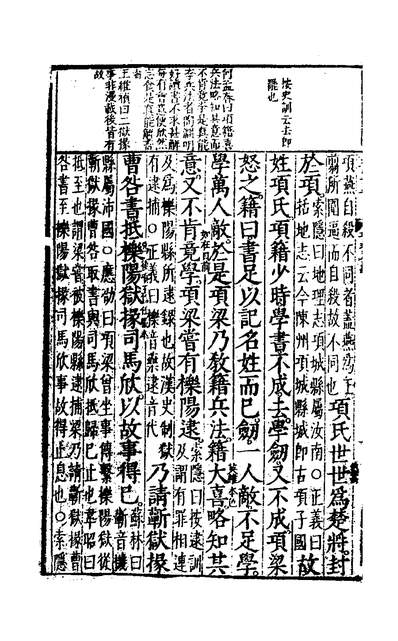 按史訓云去即
罷也
何孟春曰項籍喜
兵法略知其意而
不肯竟學是真能
李兵法者陶淵明
好讀書不求甚解
每有會意便欣然
忘食是真能讀書
者
王維楨曰二獄掾
事非漫載後皆有
故
項燕自殺不同者蓋燕為王
翦所圍逼而自殺故不同也
項氏世世爲楚將封
於項
索隱曰地理志項城縣屬汝南○正義曰
括地志云今陳州項城縣城即古項子國
故
姓項氏項籍少時學書不成去學劒又不成項梁
怒之籍曰書足以記名姓而已劒一人敵不足學
學萬人敵於是項梁乃教籍兵法籍大喜略知其
意又不肯竟學項梁嘗有櫟陽逮
索隱曰按逮訓
及謂有罪相連
及爲櫟陽縣所逮録也故漢史制獄
有逮捕○正義曰櫟音藥逮音代
乃請蘄獄掾
曹咎書抵櫟陽獄掾司馬欣以故事得已
蘇林曰
蘄音機
縣屬沛國○應劭曰項梁曾坐事傳繫櫟陽獄從
蘄獄掾曹咎取書與司馬欣抵歸已止也韋昭曰
抵至也謂梁嘗被櫟陽縣逮捕梁乃請蘄獄掾曹
咎書至櫟陽獄掾司馬欣事故得止息也○索隱